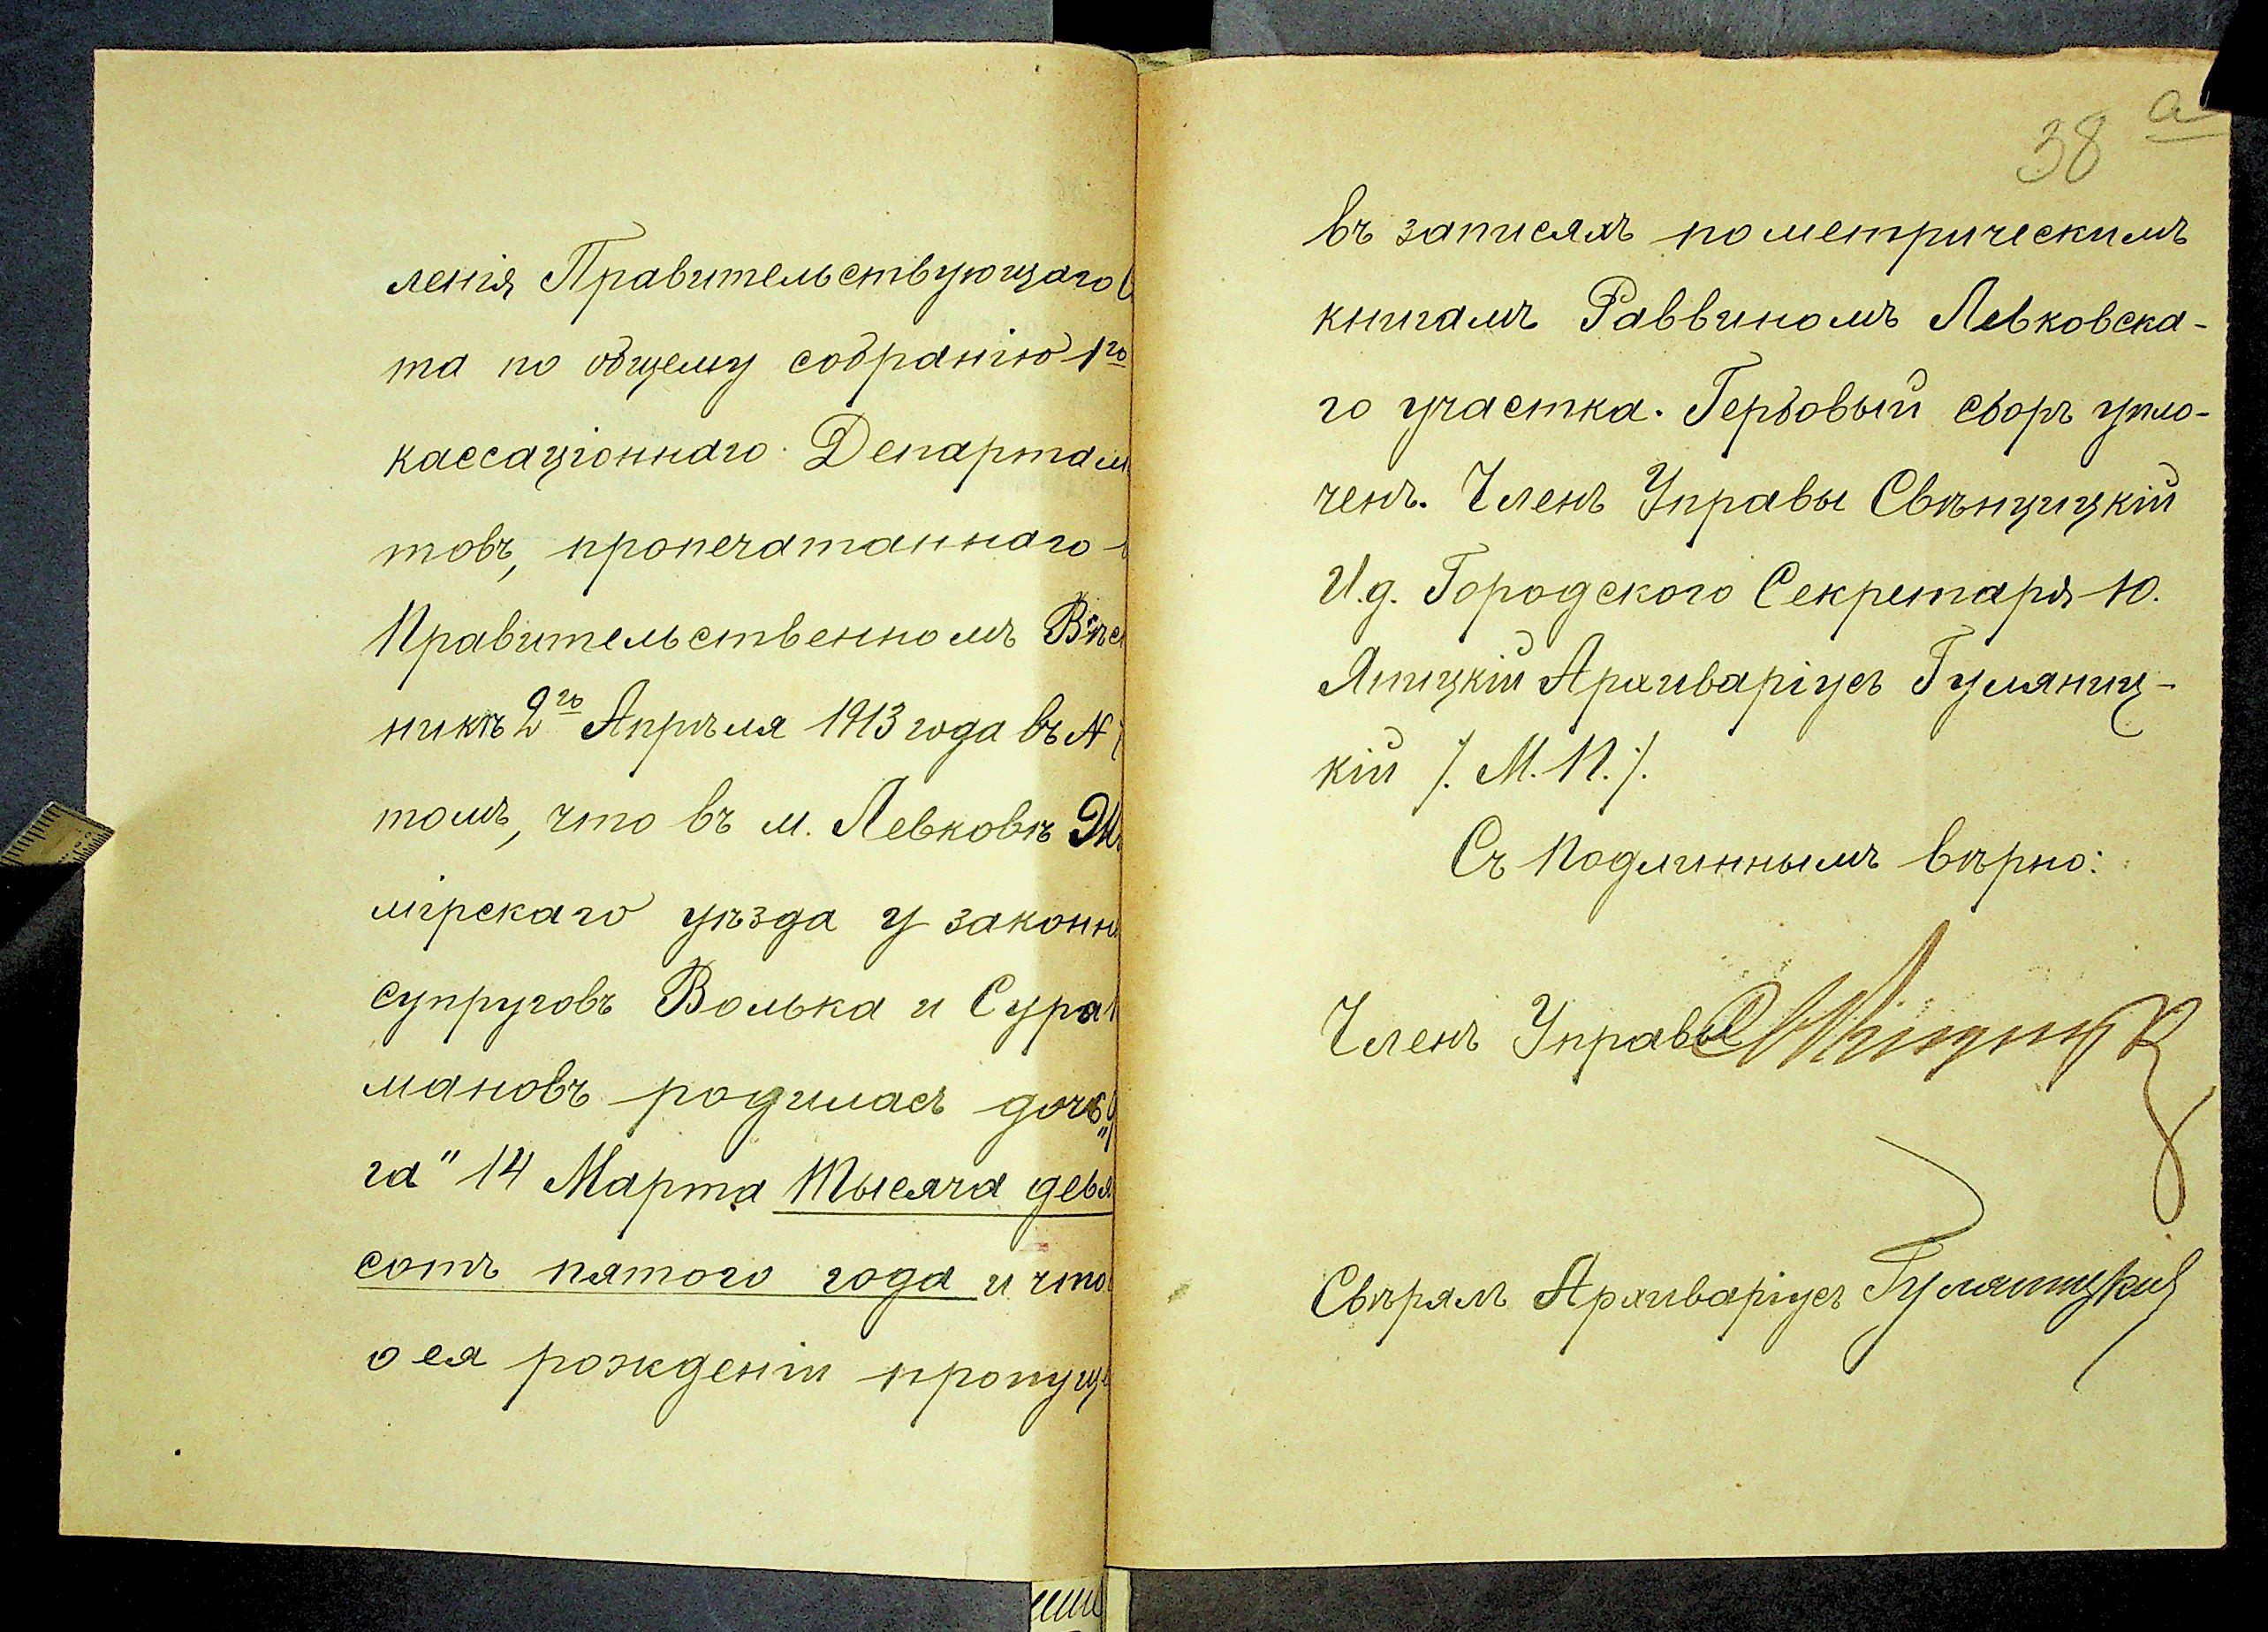 ленія Правительствующаго
та по общему собранію 1го
кассаціоннаго Департам
товъ, пропечатаннаго
Правительственномъ Вѣс
никѣ 2го Апрѣля 1913 года въ №
томъ, что въ м. Левковѣ Жи
мірскаго уѣзда у законн
супруговъ Волька и Сура
мановъ родилась дочь „
га" 14 Марта Тысяча девя
сотъ пятого года и что
о ея рожденіи пропуще
38 а
въ записяхъ по метрическимъ
книгамъ Раввиномъ Левковска-
го участка. Гербовый сборъ упло-
ченъ. Членъ Управы Свѣнцицкій
И.д. Городского Секретаря Ю.
Яницкій Архиваріусъ Гуляниц-
кій /. М.П./.
Съ подлиннымъ вѣрно:
Членъ Управы Свѣнцицкій
Свѣрялъ Архиваріусъ Гуляницкій